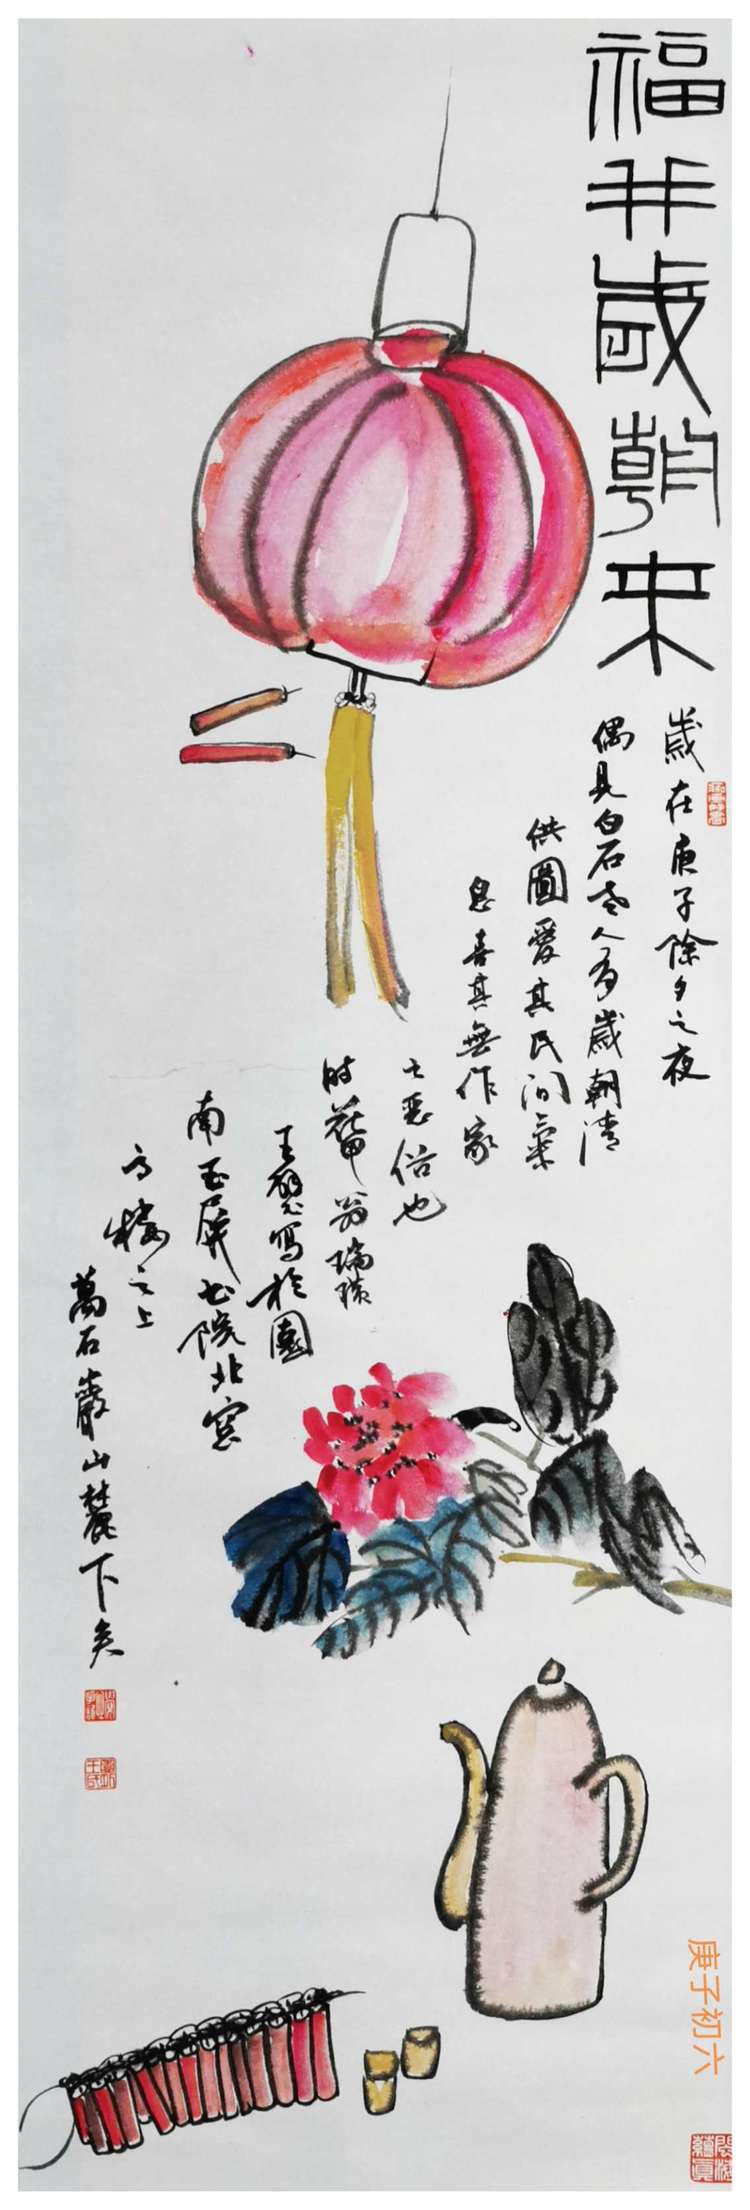 福并歲朝来
歲在庚子除夕之夜
偶見白石老人有歲朝清
供圖愛其民間氣
息喜其無作家
之惡俗也
时翁瑞
王寫於園
南玉屏书院北窗
高樓之上
萬石巖山麓下矣
庚子初六